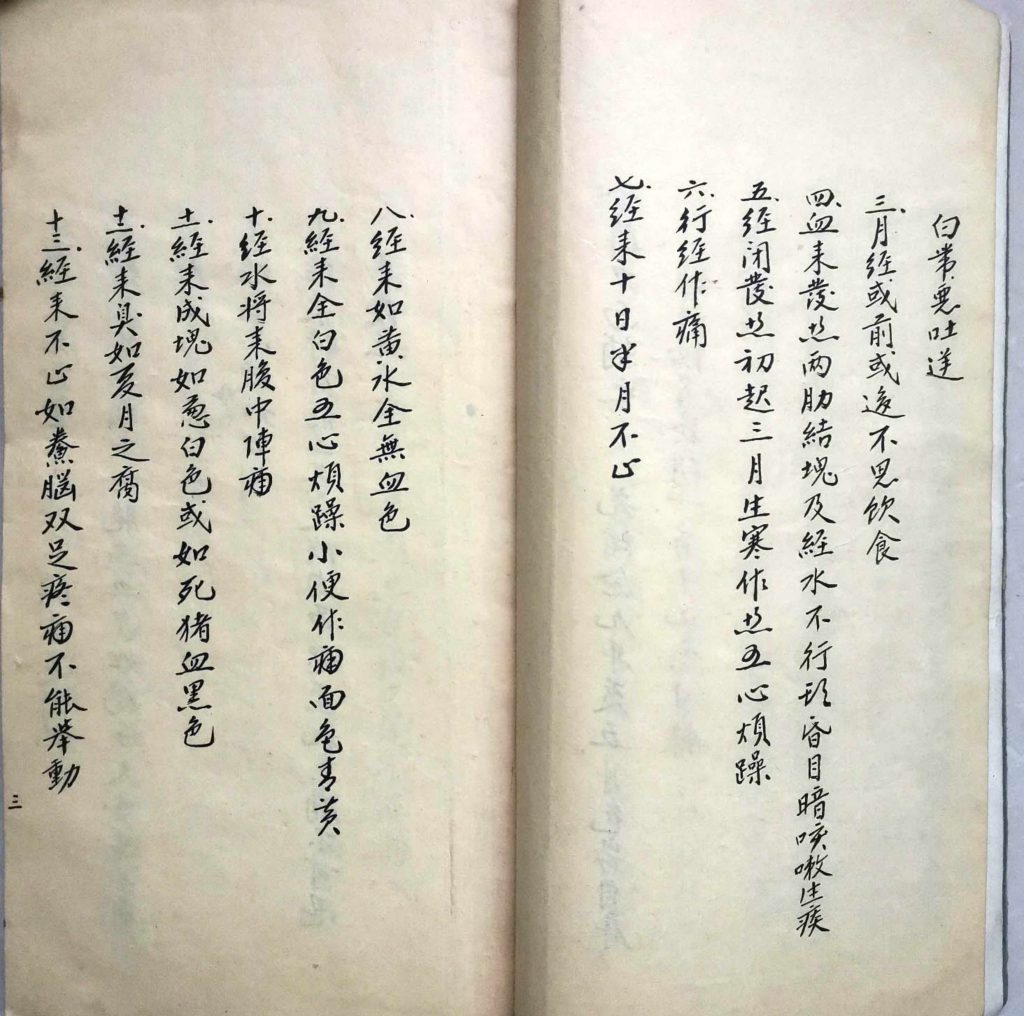 白帶惡吐逆
三、月經或前或後不思飲食
四、血来發热两肋結塊及経水不行頭昏目暗咳嗽生痰
五、經闭發热初起三月生寒作热五心煩躁
六、行經作痛
七、經来十日半月不止
八、經来如黄水全無血色
九、經来全白色五心煩躁小便作痛面色青黄
十、經水将来腹中陣痛
十一、經来成塊如葱白色或如死猪血黑色
十二、經来臭如夏月之腐
十三、經来不止如鱉脳双足疼痛不能举動
三